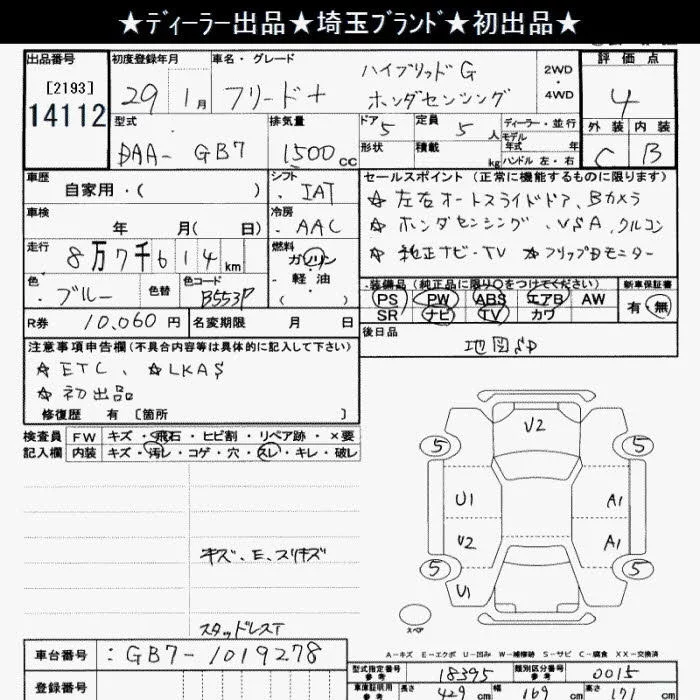 ★ディーラー出品★埼玉ブランド★初出品★
出品番号
[2193]
14112
初度登録年月
29 1月
車名・グレード
フリード+
ハイブリッドG
ホンダセンシング
2WD
・
4WD
評価点
4
外装 内装
C B
型式
DAA- GB7
排気量
1500cc
ドア
5
形状
定員
5人
積載
kg
ディーラー・並行
モデル
年式 年
ハンドル 左・右
車歴
自家用・( )
シフト
IAT
セールスポイント(正常に機能するものに限ります)
☆ 左右オートスライドドア、Bカメラ
☆ ホンダセンシング、VSA、クルコン
☆ 純正ナビ・TV ☆フリップDモニター
車検
年 月( 日)
冷房
AAC
走行
8万7千614km
燃料
ガソリン
・
軽油
( )
色
ブルー
色替
色コード
B553P
装備品(純正品に限り○をつけてください)
PS PW ABS エアB AW
SR ナビ TV カワ
新車保証書
有・無
R券 10,060円
名変期限 月 日
後日品
地図SD
注意事項申告欄(不具合内容等は具体的に記入して下さい)
☆ ETC、 ☆LKAS
☆ 初出品
修復歴 有 〔箇所 〕
検査員
記入欄
FW キズ・飛石・ヒビ割・リペア跡・×要
内装 キズ・汚レ・コゲ・穴・スレ・キレ・破レ
キズ、E、スリキズ
スタッドレスT
V2
5 5
U1 A1
V2 A1
5 5
U1
スペア
A-キズ E-エクボ U-凹み W-補修跡 S-サビ C-腐食 XX-交換済
車台番号 :GB7-1019278
登録番号
型式指定番号
参考
18395
類別区分番号
参考
0015
車庫証明用
参考
長さ
429cm
幅
169cm
高さ
171cm